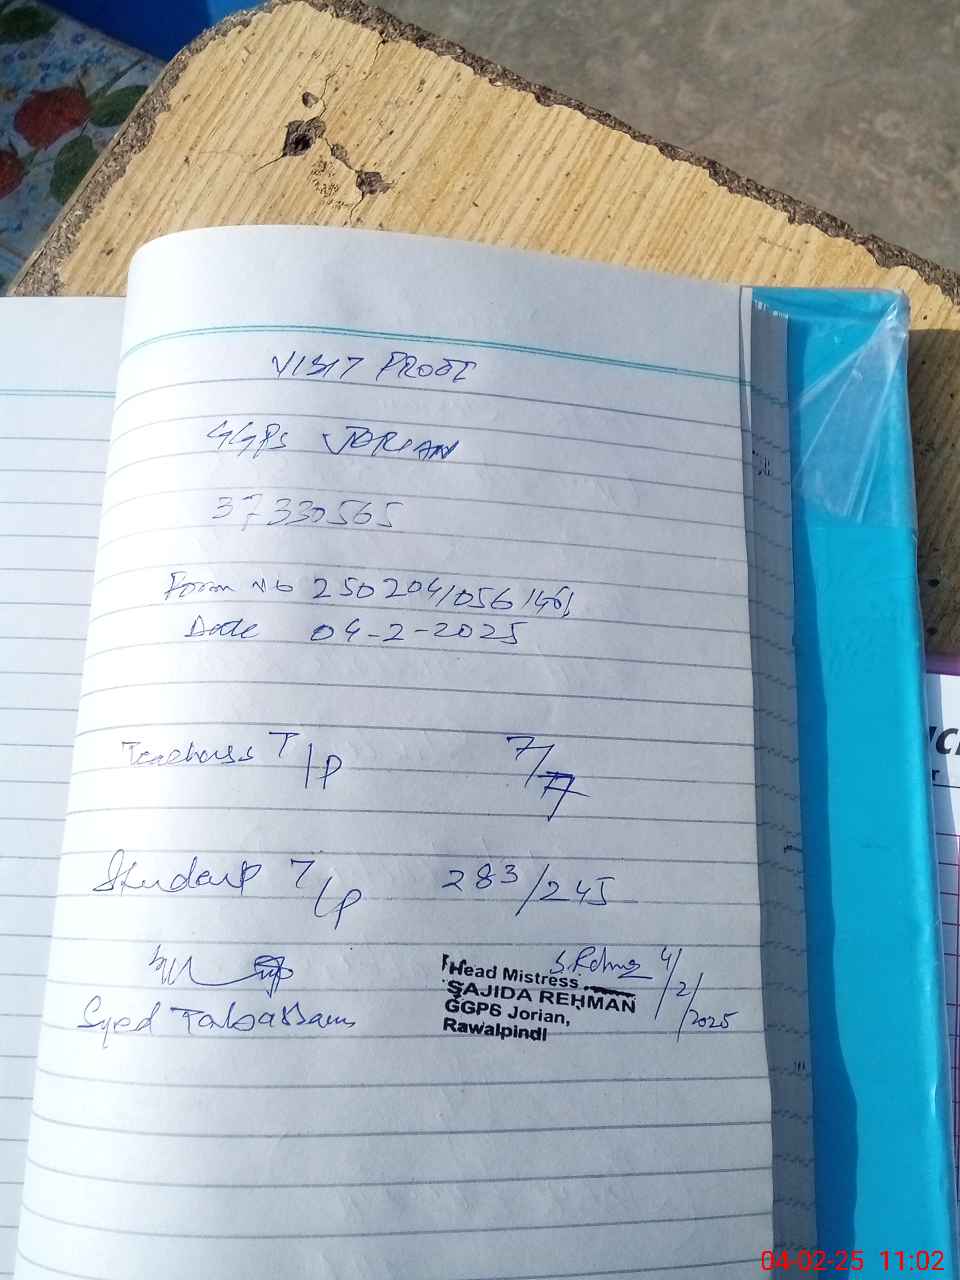 VISIT PROOF
GGPS JORIAN
37330565
Form No 250204/056146
Date 04-2-2025
Teachers T/P 7/7
Student T/P 283/245
Syed Tabassam
S. Rehma 4/2/2025
Head Mistress
SAJIDA REHMAN
GGPS Jorian,
Rawalpindi
04-02-25 11:02